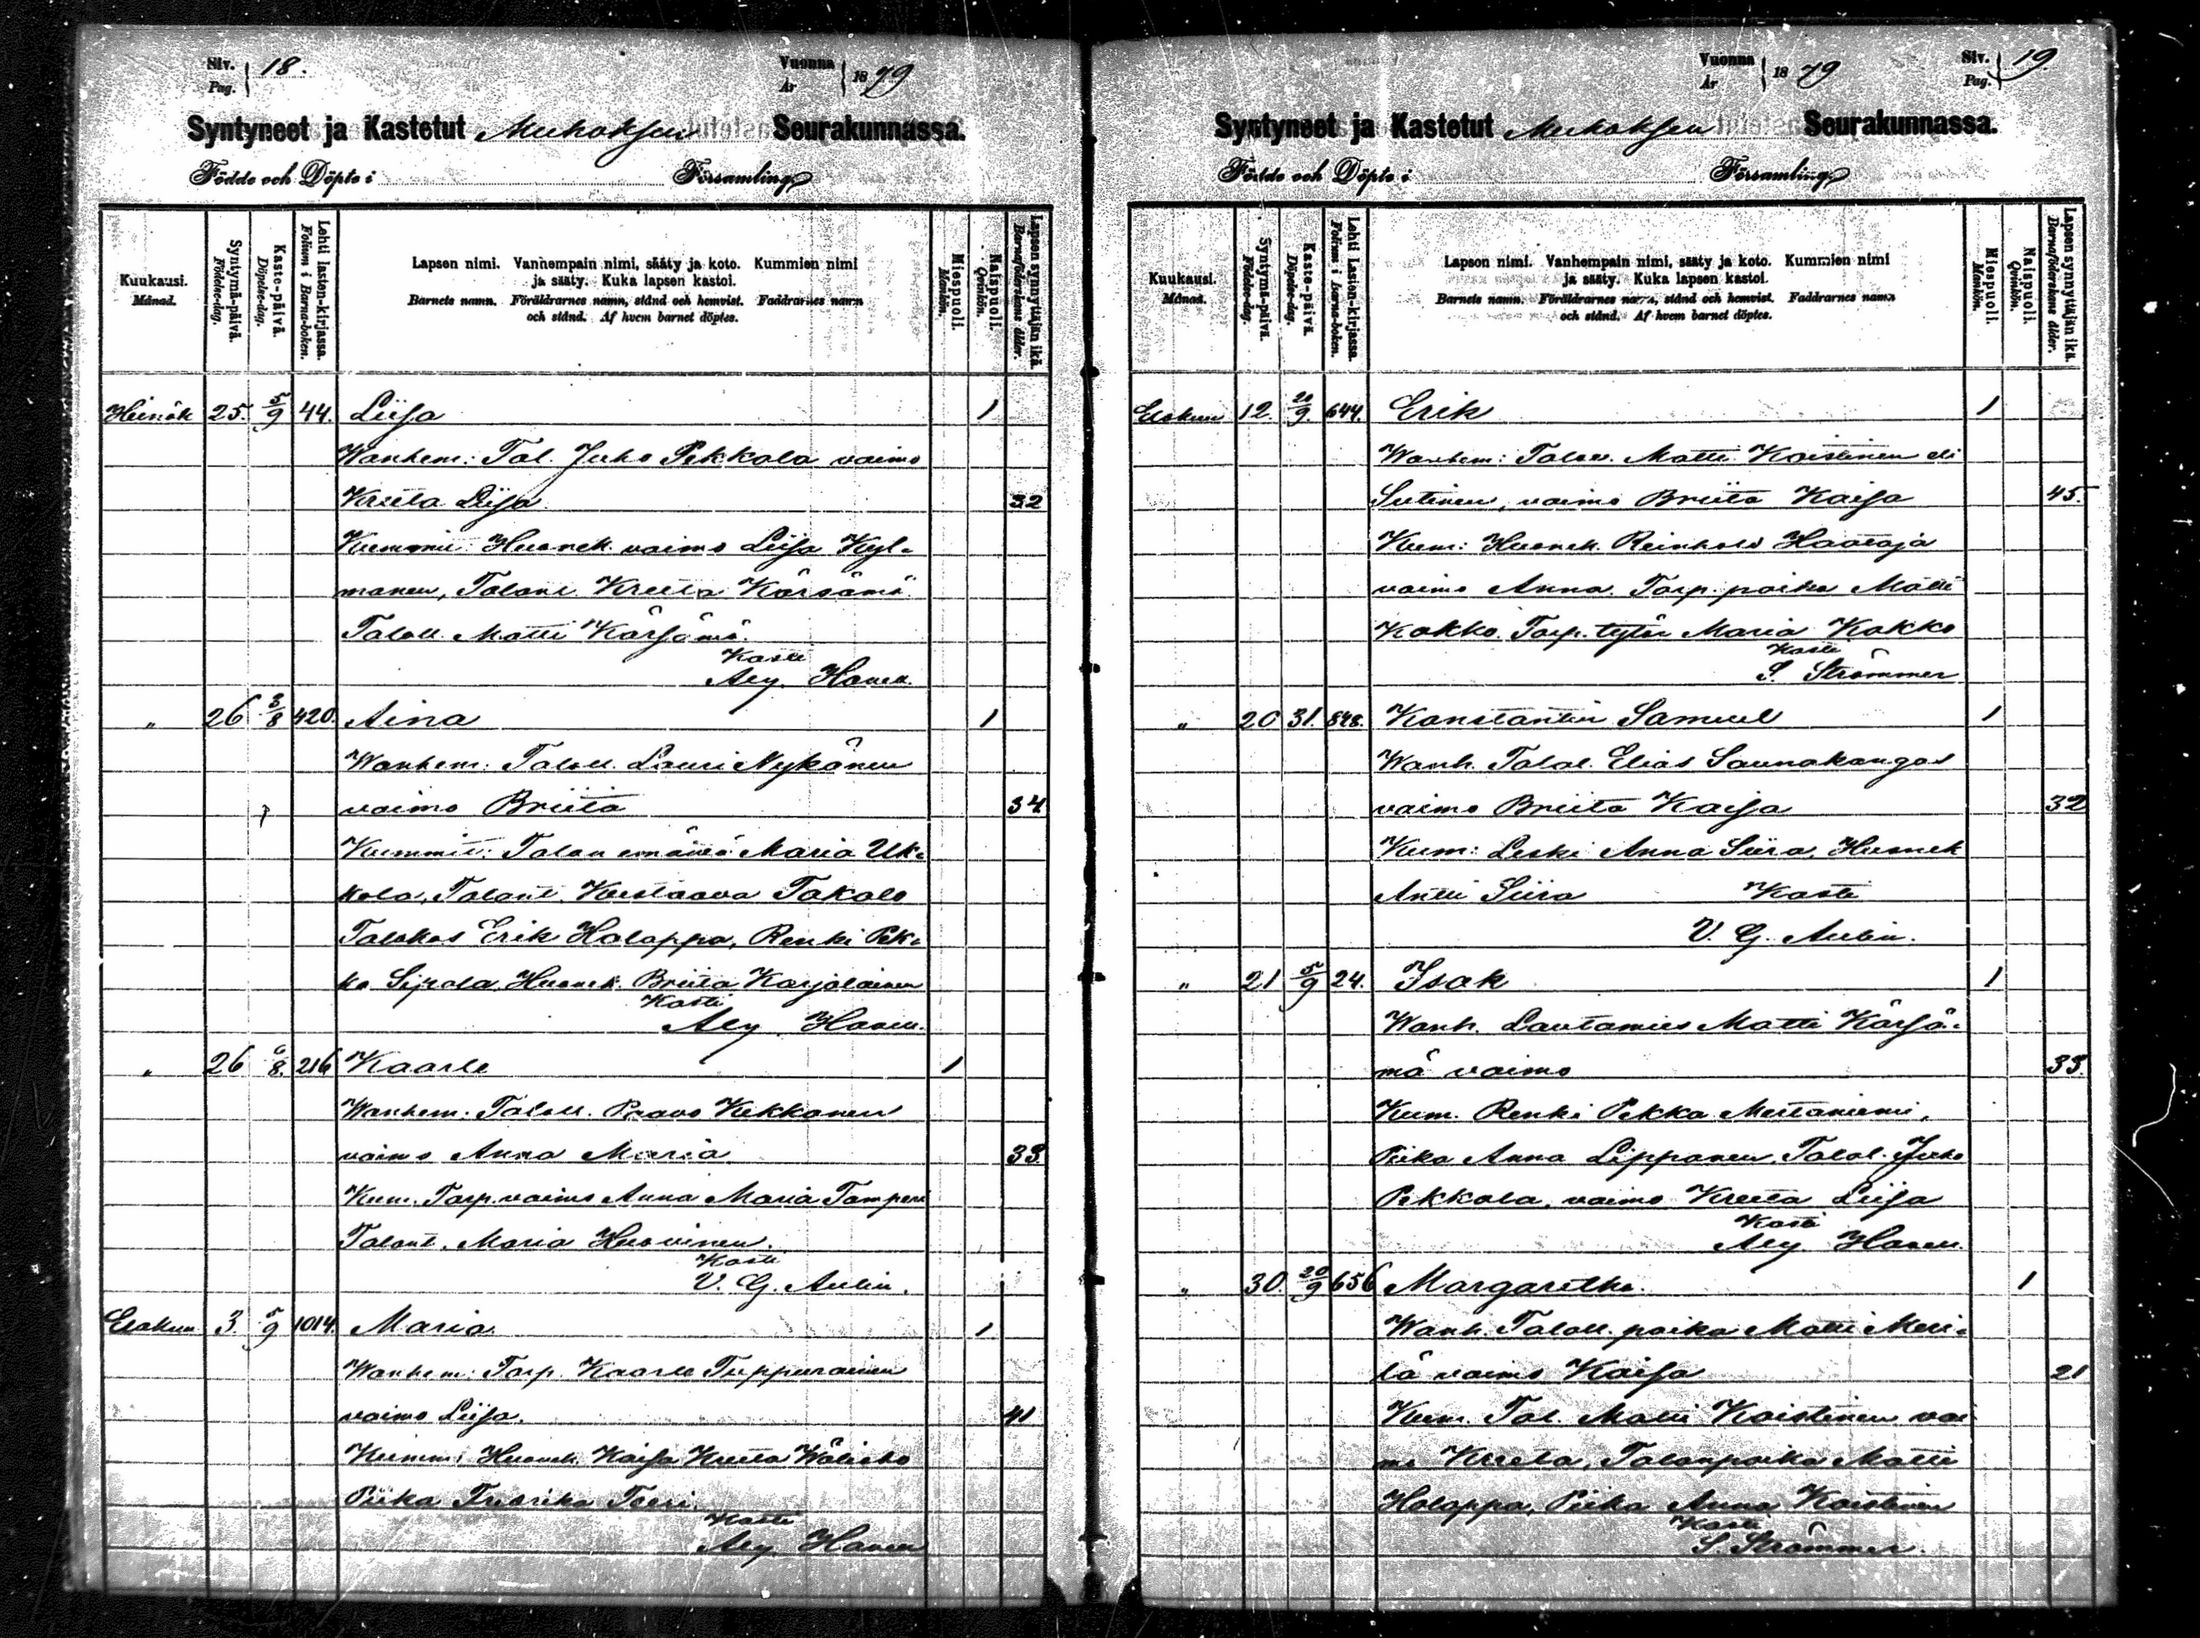 Siv. Pag. 18.
Vuonna År 1879
Syntyneet ja Kastetut Muhoksen Seurakunnassa.
Födde och Döpte i Församling
Kuukausi. Månad.
Syntymä-päivä. Födelse-dag.
Kaste-päivä. Döpelse-dag.
Lehti lasten-kirjassa. Folium i Barna-boken.
Lapsen nimi. Vanhempain nimi, sääty ja koto. Kummien nimi
ja sääty. Kuka lapsen kastoi.
Barnets namn. Föräldrarnes namn, stånd och hemvist. Faddrarnes namn
och stånd. Af hvem barnet döptes.
Miespuoli. Mankön.
Naispuoli. Qvinkön.
Lapsen synnyttäjän ikä. Barnaföderskans ålder.
Heinäk 25. 5/9 44. Liisa 1
Wanhem: Tal. Juho Pekkala vaimo
Kreeta Liisa 32
Kummit: Huonek. vaimo Liisa Kyl-
manen, Talont. Kreeta Kärsämä
Taloll. Matti Kärsämä.
Kasti
Aug. Haven.
" 26 3/8 420. Aina 1
Wanhem: Taloll. Lauri Nykänen
vaimo Briita 34
Kummit: Talon emäntä Maria Uk-
kola, Talont. Kustaava Takalo
Talokas Erik Holappa, Renki Pek-
ka Sipola, Huonek. Briita Karjalainen
Kasti
Aug. Haven.
" 26 6/8. 216 Kaarle 1
Wanhem: Taloll. Paavo Kekkonen
vaimo Anna Maria 33
Kum. Torp. vaimo Anna Maria Tamperi
Talont. Maria Huovinen.
Kasti
V. G. Aulin.
Elokuu 3. 5/9 1014. Maria 1
Wanhem: Torp. Kaarle Tuppurainen
vaimo Liisa. 41
Kumm: Huonek. Kaisa Kreeta Wälitalo
Piika Fredrika Teeri.
Kasti
Aug. Haven
Vuonna År 1879
Siv. Pag. 19.
Syntyneet ja Kastetut Muhoksen Seurakunnassa.
Födde och Döpte i Församling
Kuukausi. Månad.
Syntymä-päivä. Födelse-dag.
Kaste-päivä. Döpelse-dag.
Lehti Lasten-kirjassa. Folium i barna-boken.
Lapsen nimi. Vanhempain nimi, sääty ja koto. Kummien nimi
ja sääty. Kuka lapsen kastoi.
Barnets namn. Föräldrarnes namn, stånd och hemvist. Faddrarnes namn
och stånd. Af hvem barnet döptes.
Miespuoli. Mankön.
Naispuoli. Qvinkön.
Lapsen synnyttäjän ikä. Barnaföderskans ålder.
Elokuu 12. 20/9. 644. Erik 1
Wanhem: Talon. Matti Koistinen eli
Sutinen, vaimo Briita Kaisa 45.
Kum: Huonek. Reinhold Haataja
vaimo Anna. Torp. poika Matti
Kokko. Torp. tytär Maria Kokko
Kasti
S. Strömmer
" 20 31. 848. Konstantin Samuel 1
Wanh. Talol. Elias Saunakangas
vaimo Briita Kaisa 32
Kum: Leski Anna Siira, Huonek
Antti Siira Kasti
V. G. Aulin.
" 21 5/9 24. Isak 1
Wanh. Lautamies Matti Kärsä-
mä vaimo 33.
Kum. Renki Pekka Mettaniemi,
Piika Anna Lipponen, Talol. Juho
Pekkala, vaimo Kreeta Liisa
Kasti
Aug. Haven.
" 30. 20/9 656 Margaretha. 1
Wanh. Taloll. poika Matti Meri-
lä vaimo Kaisa 21
Kum. Tal. Matti Koistinen vai
mo Kreeta, Talonpoika Matti
Holappa, Piika Anna Koistinen
Kasti
S. Strömmer.